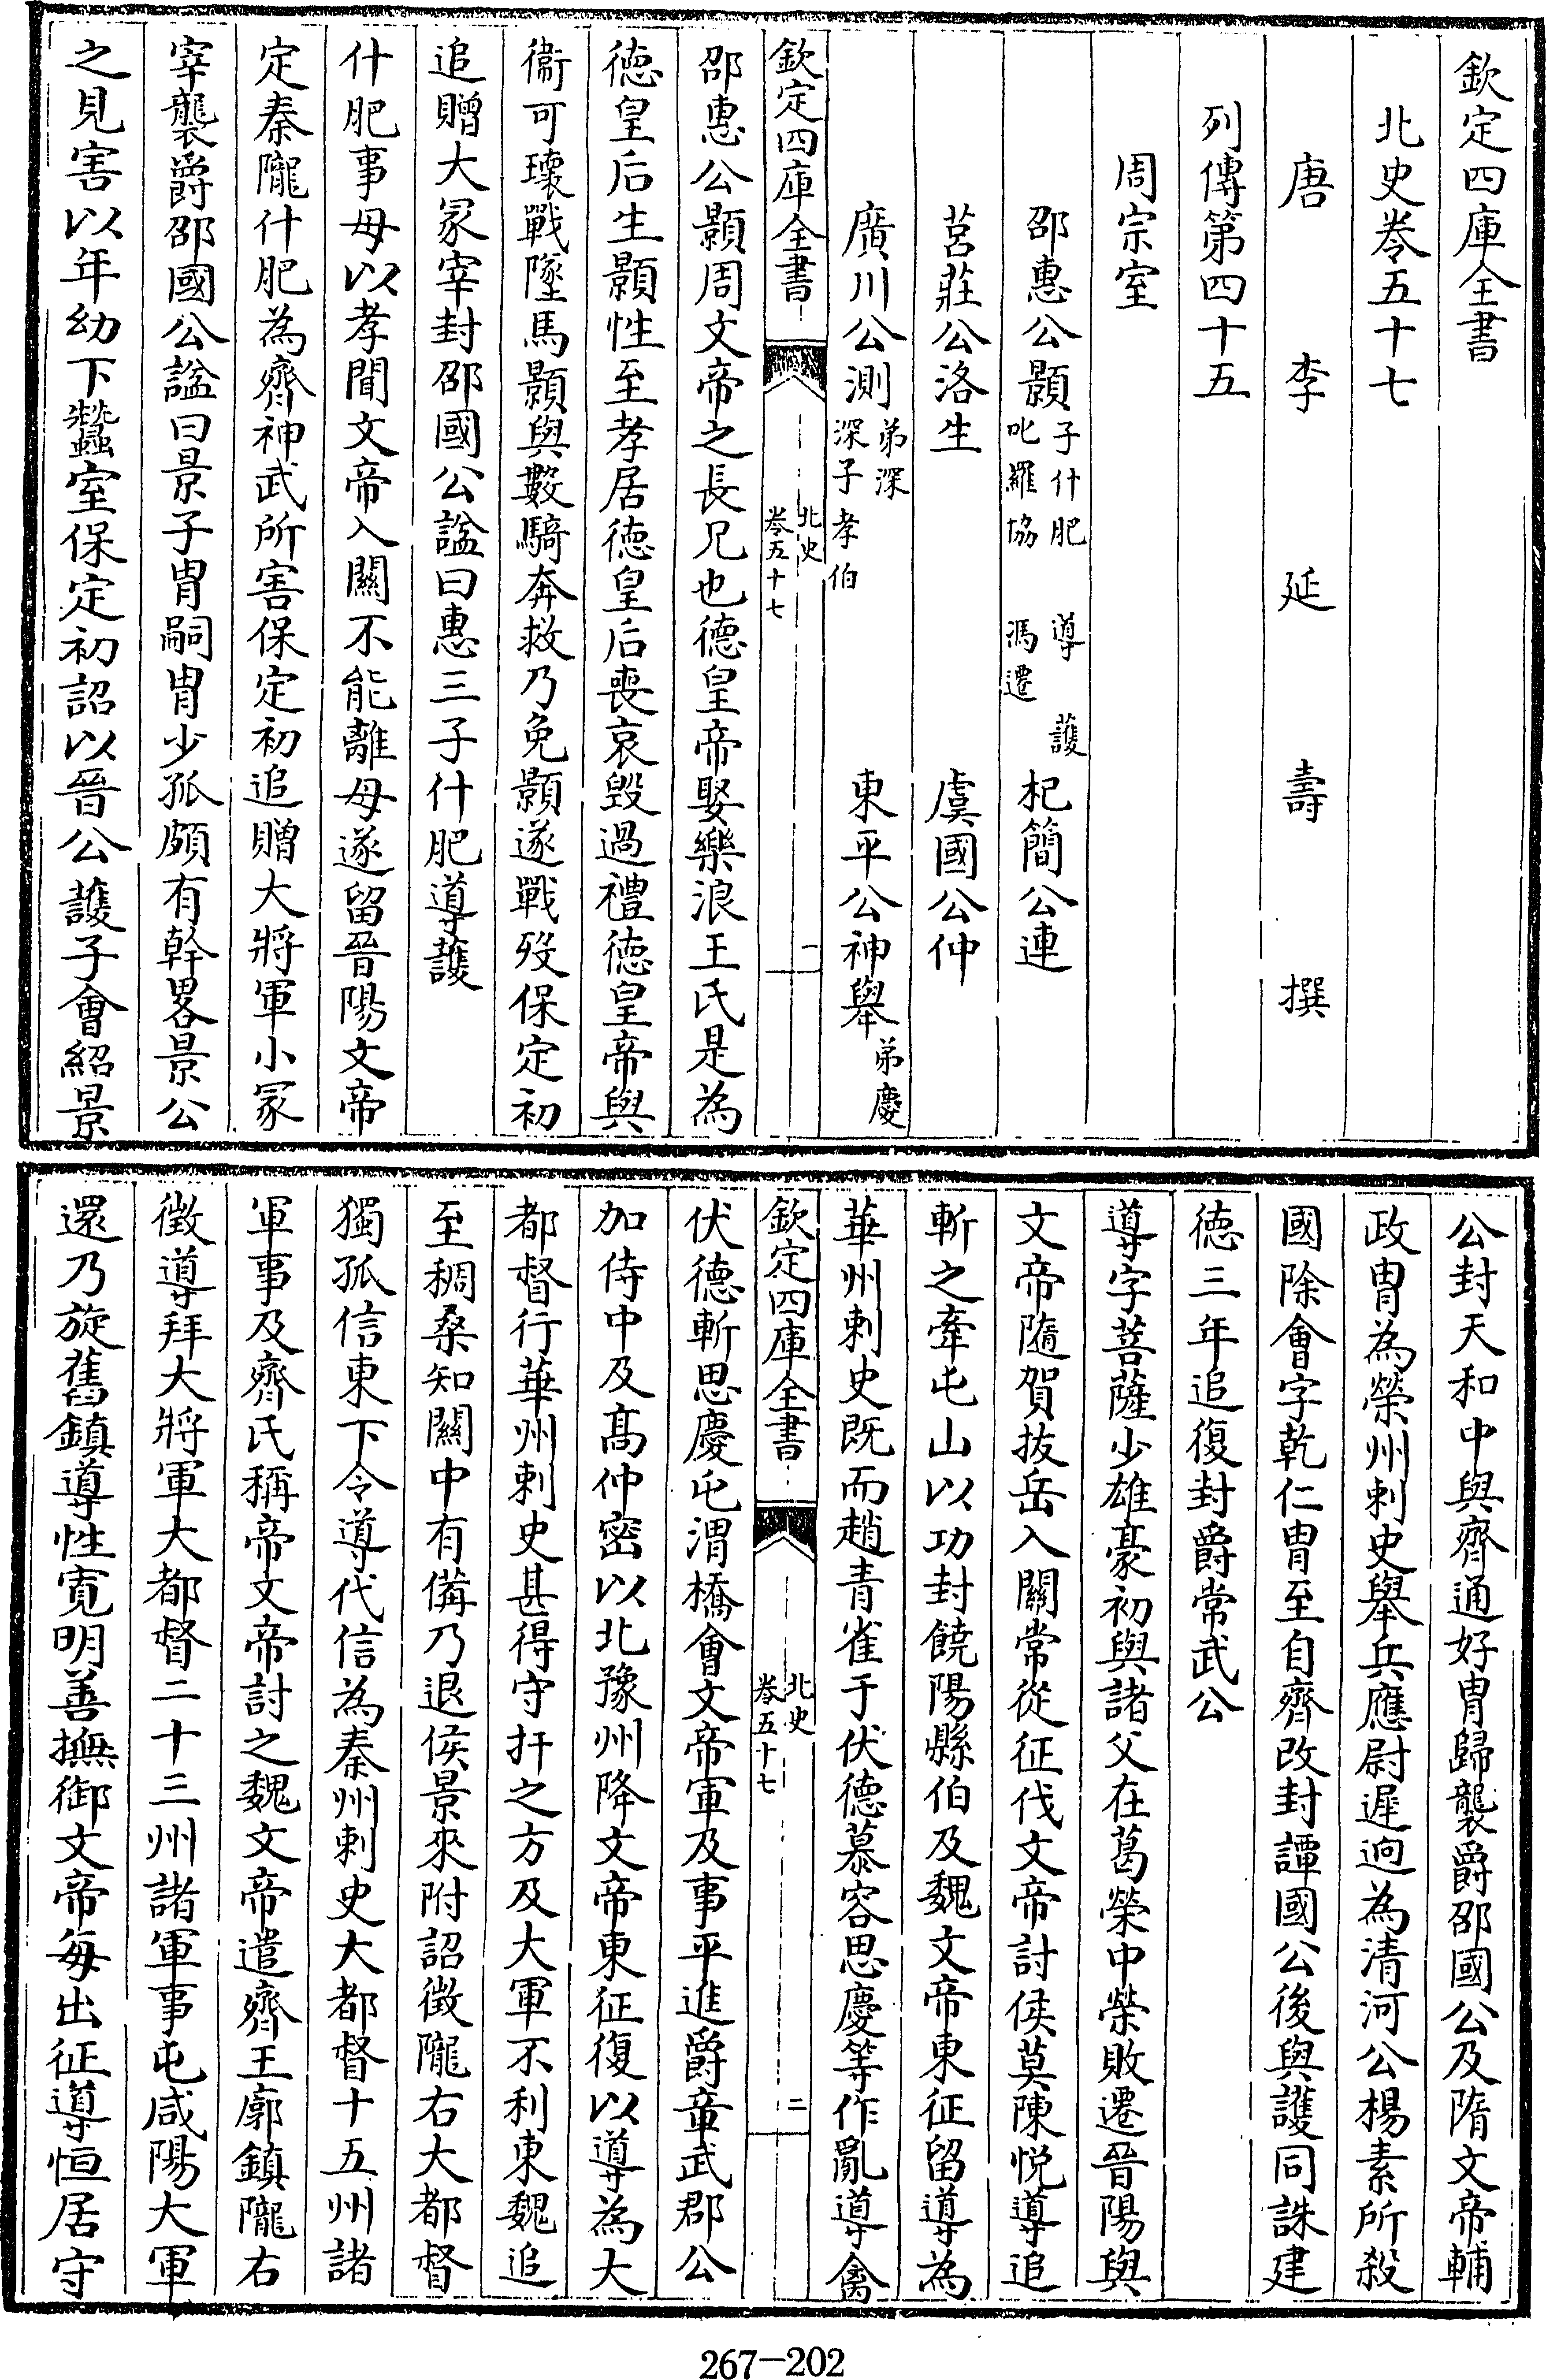 欽定四庫全書
北史卷五十七
唐 李 延 壽 撰
列傳第四十五
周宗室
邵惠公顥子什肥 導 護叱羅協 馮遷 杞簡公連
莒莊公洛生 虞國公仲
廣川公測弟深深子孝伯 東平公神舉弟慶
欽定四庫全書 北史卷五十七 一
邵惠公顥周文帝之長兄也德皇帝娶樂浪王氏是為
德皇后生顥性至孝居德皇后喪哀毀過禮德皇帝與
衞可瓌戰墜馬顥與數騎奔救乃免顥遂戰歿保定初
追贈大冢宰封邵國公諡曰惠三子什肥導護
什肥事母以孝聞文帝入關不能離母遂留晉陽文帝
定秦隴什肥為齊神武所害保定初追贈大將軍小冢
宰襲爵邵國公諡曰景子胄嗣胄少孤頗有幹畧景公
之見害以年幼下蠶室保定初詔以晉公護子會紹景
公封天和中與齊通好胄歸襲爵邵國公及隋文帝輔
政胄為滎州刺史舉兵應尉遲逈為清河公楊素所殺
國除會字乾仁胄至自齊改封譚國公後與護同誅建
德三年追復封爵常武公
導字菩薩少雄豪初與諸父在葛榮中榮敗遷晉陽與
文帝隨賀拔岳入關常從征伐文帝討侯莫陳悅導追
斬之牽屯山以功封饒陽縣伯及魏文帝東征留導為
華州刺史既而趙青雀于伏德慕容思慶等作亂導禽
欽定四庫全書 北史卷五十七 二
伏德斬思慶屯渭橋會文帝軍及事平進爵章武郡公
加侍中及高仲密以北豫州降文帝東征復以導為大
都督行華州刺史甚得守扞之方及大軍不利東魏追
至稠桑知關中有備乃退侯景來附詔徵隴右大都督
獨孤信東下令導代信為秦州刺史大都督十五州諸
軍事及齊氏稱帝文帝討之魏文帝遣齊王廓鎮隴右
徵導拜大將軍大都督二十三州諸軍事屯咸陽大軍
還乃旋舊鎮導性寬明善撫御文帝每出征導恒居守
267-202